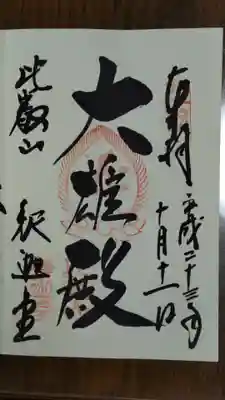 奉拝
平成二十三年
十月十一日
大雄殿
比叡山
釈迦堂